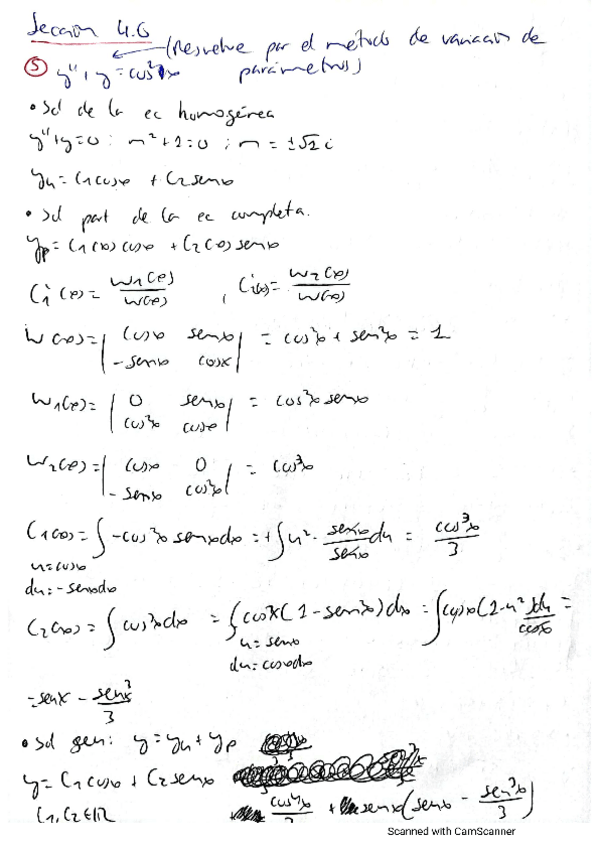 Sección 4.6
(Resuelve por el método de variación de
parámetros)
⑤ y'' + y = cos²x
• Sol de la ec homogénea
y'' + y = 0 : m² + 1 = 0 ; m = ±√2 i
yh = C1 cosx + C2 senx
• Sol part de la ec completa.
yp = C1(x) cosx + C2(x) senx
C1'(x) = W1(x)/W(x) , C2'(x) = W2(x)/W(x)
W(x) = | cosx senx | = cos²x + sen²x = 1
| -senx cosx |
W1(x) = | 0 senx | = cos²x senx
| cos²x cosx |
W2(x) = | cosx 0 | = cos³x
| -senx cos²x |
C1(x) = ∫ -cos²x senx dx = +∫ u² · senx/senx du = cos³x/3
u = cosx
du = -senx dx
C2(x) = ∫ cos³x dx = ∫ cosx (1 - sen²x) dx = ∫ cosx (1 - u²) du/cosx =
u = senx
du = cosx dx
= senx - sen³x/3
• Sol gen: y = yh + yp
y = C1 cosx + C2 senx
C1, C2 ∈ ℝ cos⁴x/3 + senx (senx - sen³x/3)
Scanned with CamScanner